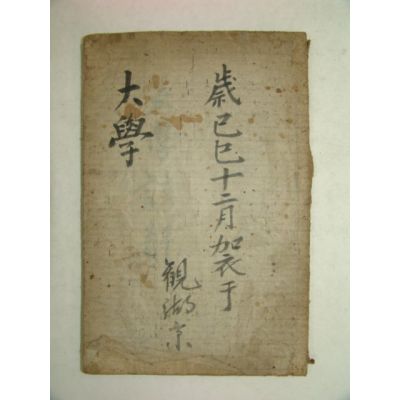 歲己巳十二月加衣于
觀湖京
大學